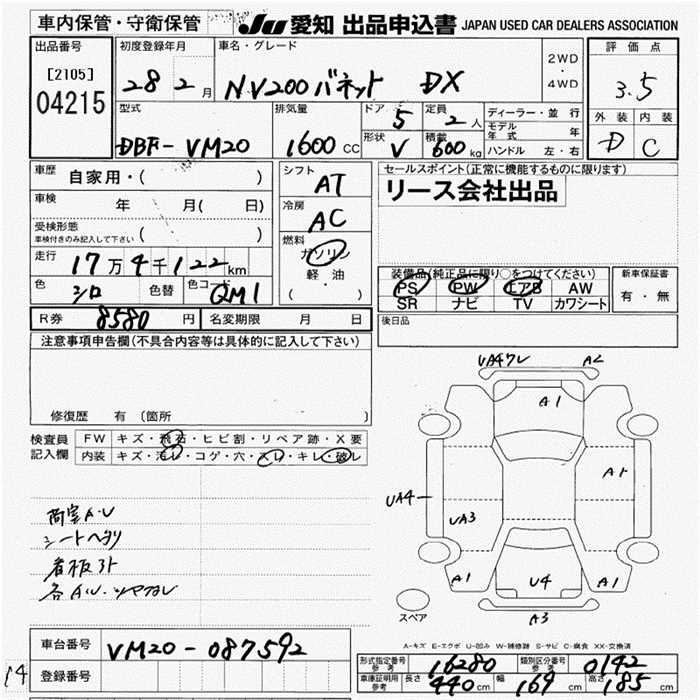 車内保管・守衛保管 JU 愛知 出品申込書 JAPAN USED CAR DEALERS ASSOCIATION
出品番号 初度登録年月 車名・グレード 2WD・4WD 評価点
[2105]
04215 28 2月 NV200バネット DX 3.5
型式 排気量 ドア 5 定員 2人 ディーラー・並行 外装 内装
DBF-VM20 1600CC 形状 V 積載 600kg モデル年式 年 D C
ハンドル 左・右
車歴 自家用・( ) シフト AT セールスポイント(正常に機能するものに限ります)
リース会社出品
車検 年 月( 日) 冷房 AC
受検形態
車検付きのみ記入して下さい ( )
燃料 ガソリン
軽・油
( )
走行 17万4千122km
装備品(純正品に限り○をつけてください) 新車保証書
PS PW エアB AW 有・無
SR ナビ TV カワシート
色 シロ 色替 色コード QM1
R券 8580円 名変期限 月 日 後日品
注意事項申告欄(不具合内容等は具体的に記入して下さい)
修復歴 有(箇所
検査員記入欄 FW キズ・飛石・ヒビ割・リペア跡・X要
内装 キズ・汚レ・コゲ・穴・スレ・キレ・破レ
UA4ワレ A2
A1
A1
UA4
UA3
A1 U4 A1
A3
スペア
荷室A・U
シートヘタリ
看板跡
各AU・ツヤカレ
A-キズ E-エクボ U-凹み W-補修跡 S-サビ C-腐食 XX-交換済
車台番号 VM20-087592
形式指定番号 参考 16280 類別区分番号 参考 0142
14 登録番号
車庫証明用 参考 長さ 440cm 幅 169cm 高さ 185cm